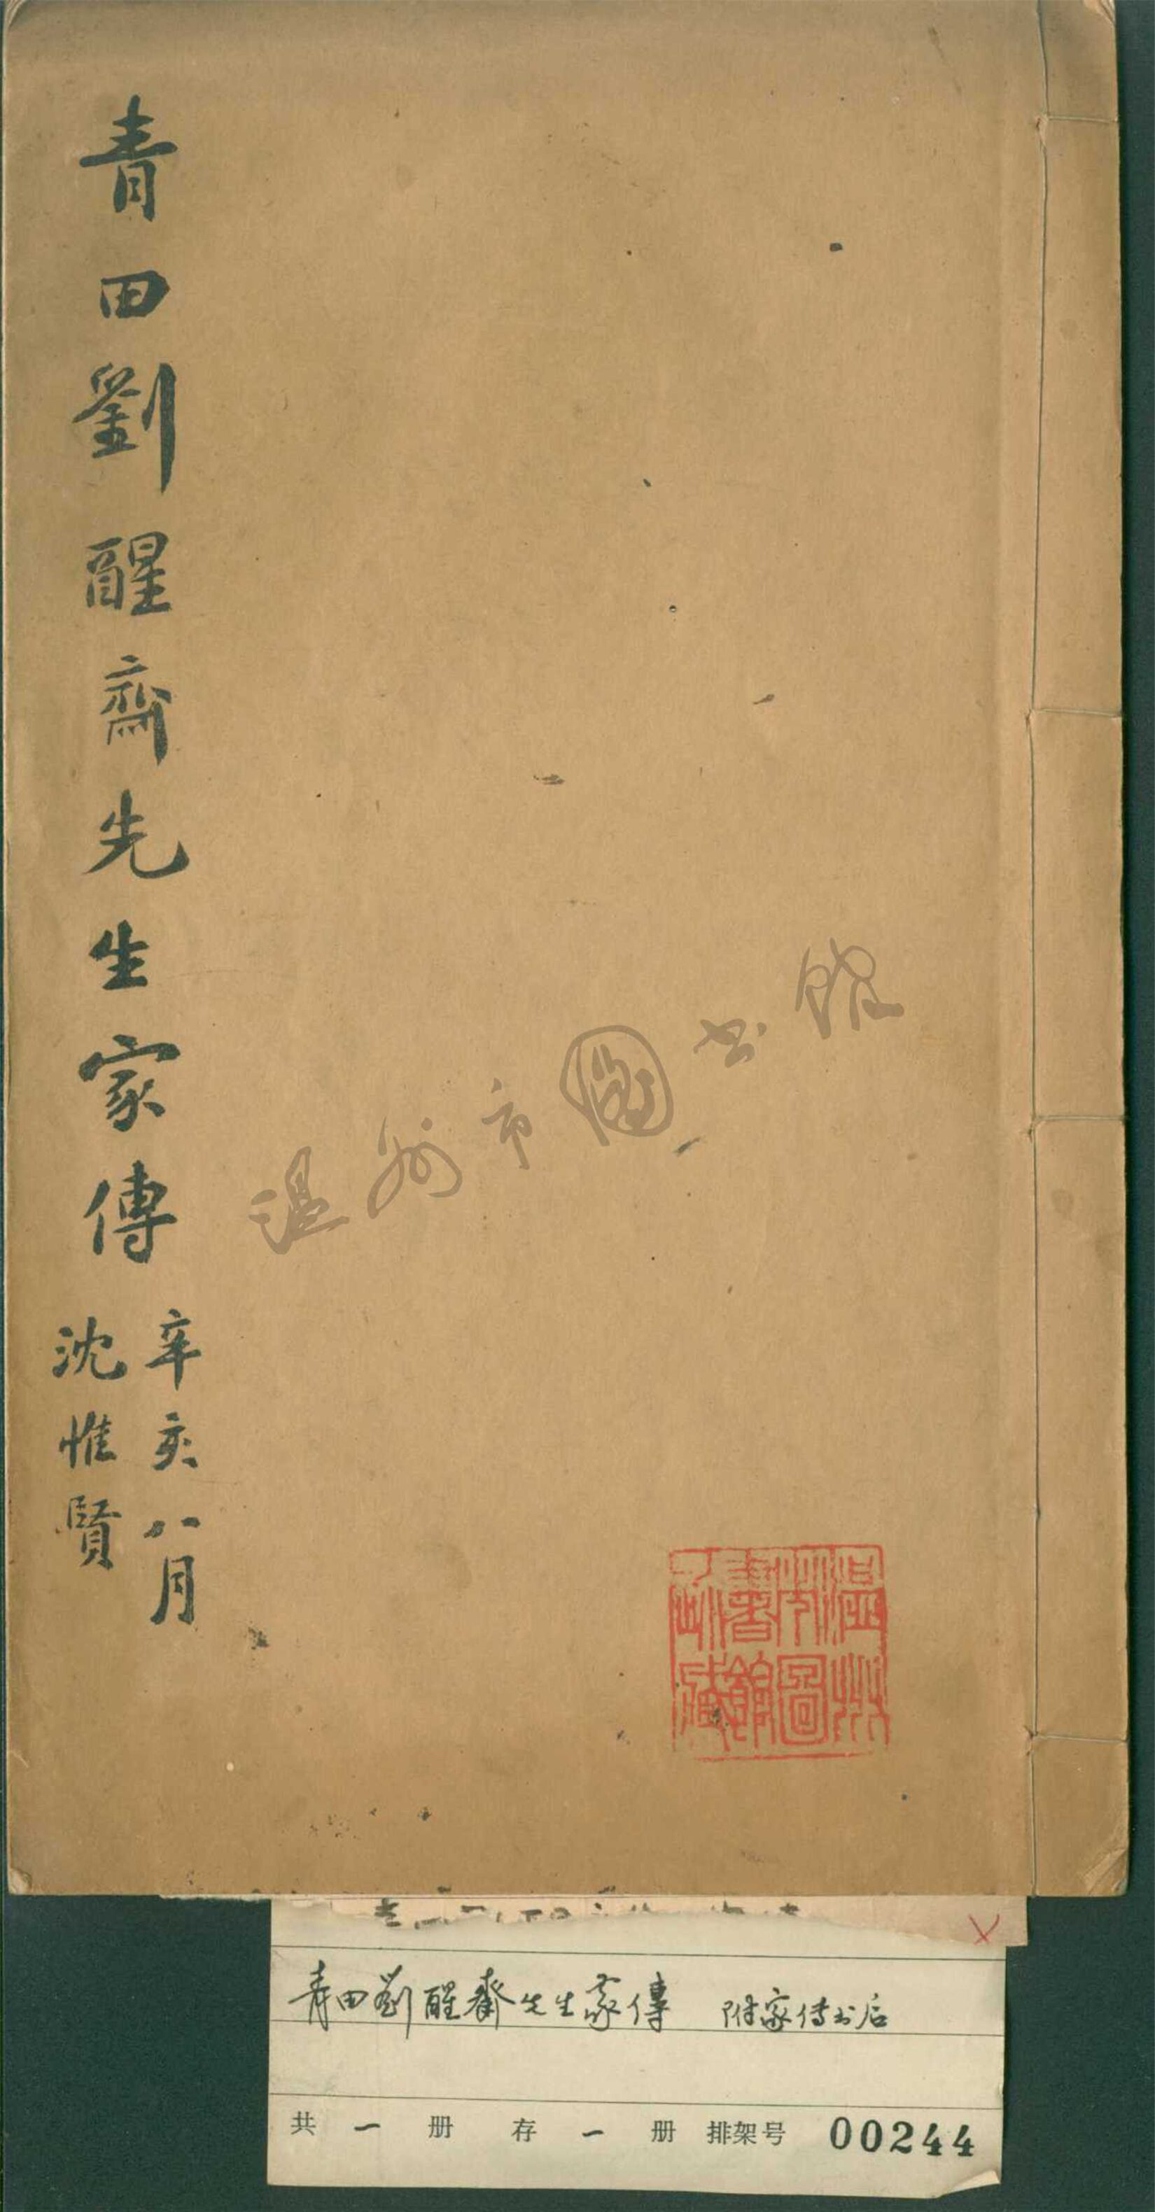 青田劉醒齋先生家傳
辛亥八月
沈惟賢
温州市图书馆
温州
市圖
書館
所藏
青田劉醒齋先生家傳 附家传书后
共一册 存一册 排架号 00244